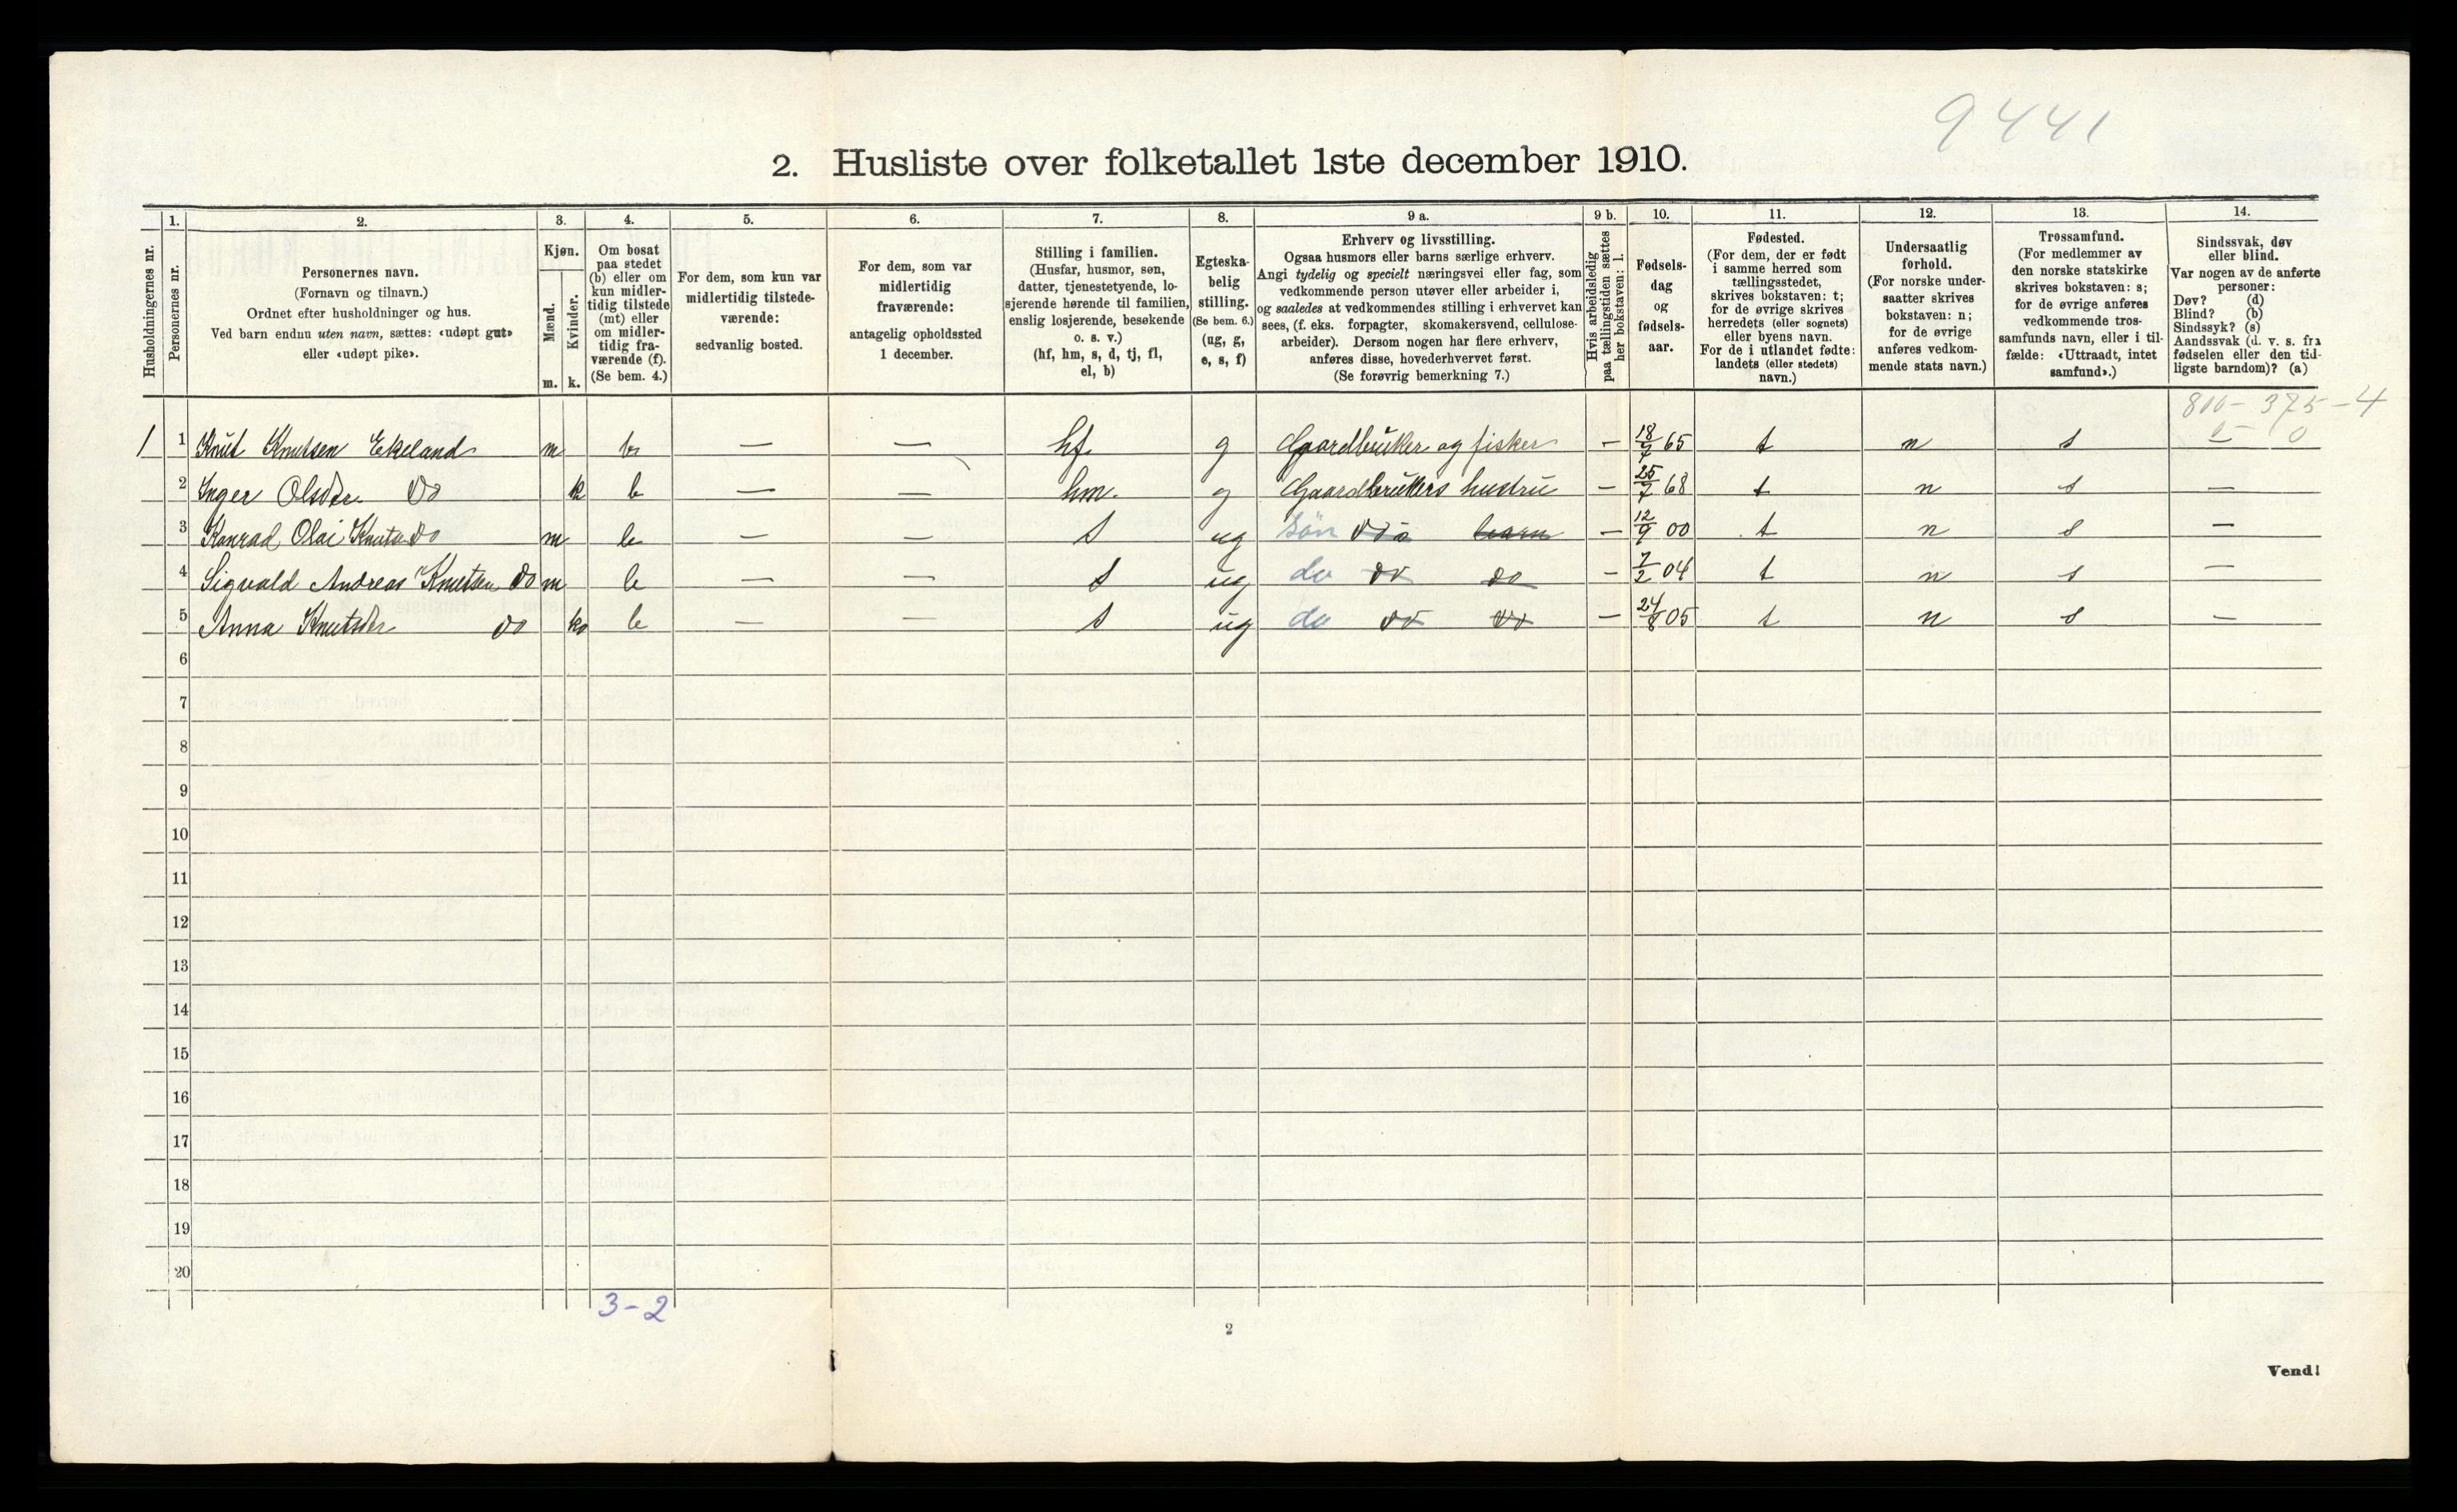 9441
2. Husliste over folketallet 1ste december 1910.
Husholdningernes nr.
1.
Personernes nr.
2.
Personernes navn.
(Fornavn og tilnavn.)
Ordnet efter husholdninger og hus.
Ved barn endnu uten navn, sættes: «udøpt gut»
eller «udøpt pike».
3.
Kjøn.
Mænd.
Kvinder.
m. k.
4.
Om bosat
paa stedet
(b) eller om
kun midler-
tidig tilstede
(mt) eller
om midler-
tidig fra-
værende (f).
(Se bem. 4.)
5.
For dem, som kun var
midlertidig tilstede-
værende:
sedvanlig bosted.
6.
For dem, som var
midlertidig
fraværende:
antagelig opholdssted
1 december.
7.
Stilling i familien.
(Husfar, husmor, søn,
datter, tjenestetyende, lo-
sjerende hørende til familien,
enslig losjerende, besøkende
o. s. v.)
(hf, hm, s, d, tj, fl,
el, b)
8.
Egteska-
belig
stilling.
(Se bem. 6.)
(ug, g,
e, s, f)
9 a.
Erhverv og livsstilling.
Ogsaa husmors eller barns særlige erhverv.
Angi tydelig og specielt næringsvei eller fag, som
vedkommende person utøver eller arbeider i,
og saaledes at vedkommendes stilling i erhvervet kan
sees, (f. eks. forpagter, skomakersvend, cellulose-
arbeider). Dersom nogen har flere erhverv,
anføres disse, hovederhvervet først.
(Se forøvrig bemerkning 7.)
9 b.
Hvis arbeidsledig
paa tællingstiden sættes
her bokstaven: l.
10.
Fødsels-
dag
og
fødsels-
aar.
11.
Fødested.
(For dem, der er født
i samme herred som
tællingsstedet,
skrives bokstaven: t;
for de øvrige skrives
herredets (eller sognets)
eller byens navn.
For de i utlandet fødte:
landets (eller stedets)
navn.)
12.
Undersaatlig
forhold.
(For norske under-
saatter skrives
bokstaven: n;
for de øvrige
anføres vedkom-
mende stats navn.)
13.
Trossamfund.
(For medlemmer av
den norske statskirke
skrives bokstaven: s;
for de øvrige anføres
vedkommende tros-
samfunds navn, eller i til-
fælde: «Uttraadt, intet
samfund».)
14.
Sindssvak, døv
eller blind.
Var nogen av de anførte
personer:
Døv? (d)
Blind? (b)
Sindssyk? (s)
Aandssvak (d. v. s. fra
fødselen eller den tid-
ligste barndom)? (a)
800-375-4
0-0
1 1 Knut Knutsen Ekeland m b — — hf. g Gaardbruker og fisker — 18/7 65 t n s —
2 Inger Olsdtr. Do k b — — hm. g Gaardbrukers hustru — 25/7 68 t n s —
3 Konrad Olai Knuts do m b — — s ug søn do barn — 12/9 00 t n s —
4 Sigvald Andreas Knutsen do m b — — s ug do do do — 7/2 04 t n s —
5 Anna Knutsdtr do k b — — s ug do do do — 24/8 05 t n s —
6
7
8
9
10
11
12
13
14
15
16
17
18
19
20
3-2
2
Vend!